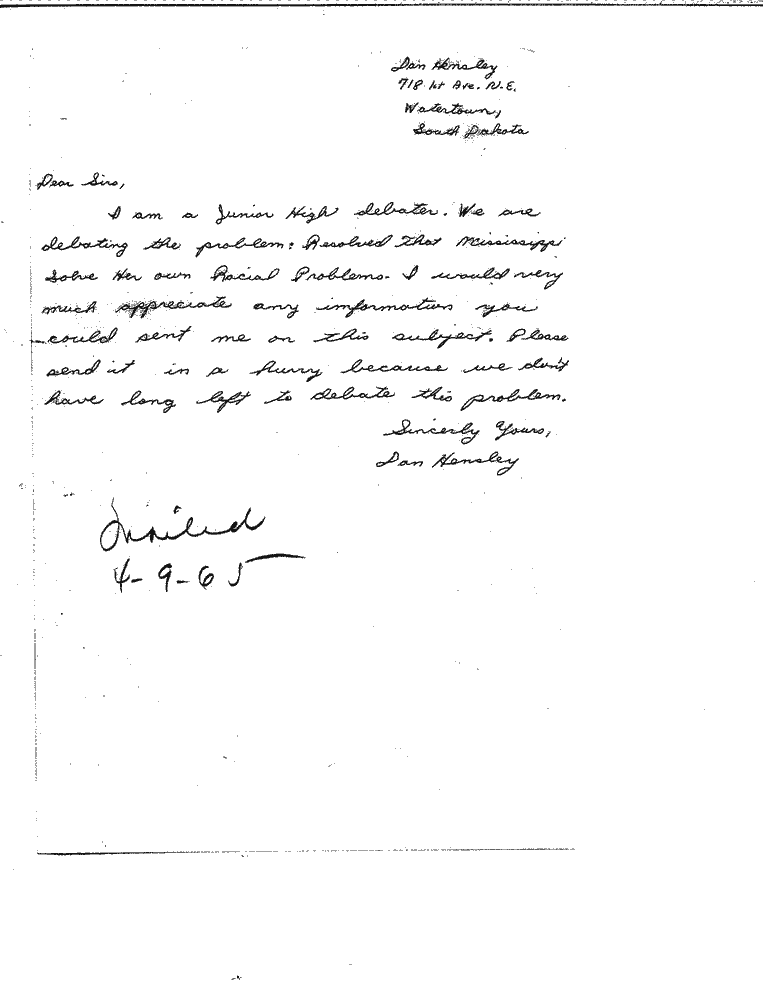 Dan Hensley
718 1st Ave. N.E.
Watertown,
South Dakota
Dear Sirs,
I am a Junior High debater. We are
debating the problem: Resolved That Mississippi
Solve Her own Racial Problems. I would very
much appreciate any imformation you
could sent me on this subject. Please
send it in a hurry because we don't
have long left to debate this problem.
Sincerly Yours,
Dan Hensley
Mailed
4-9-65